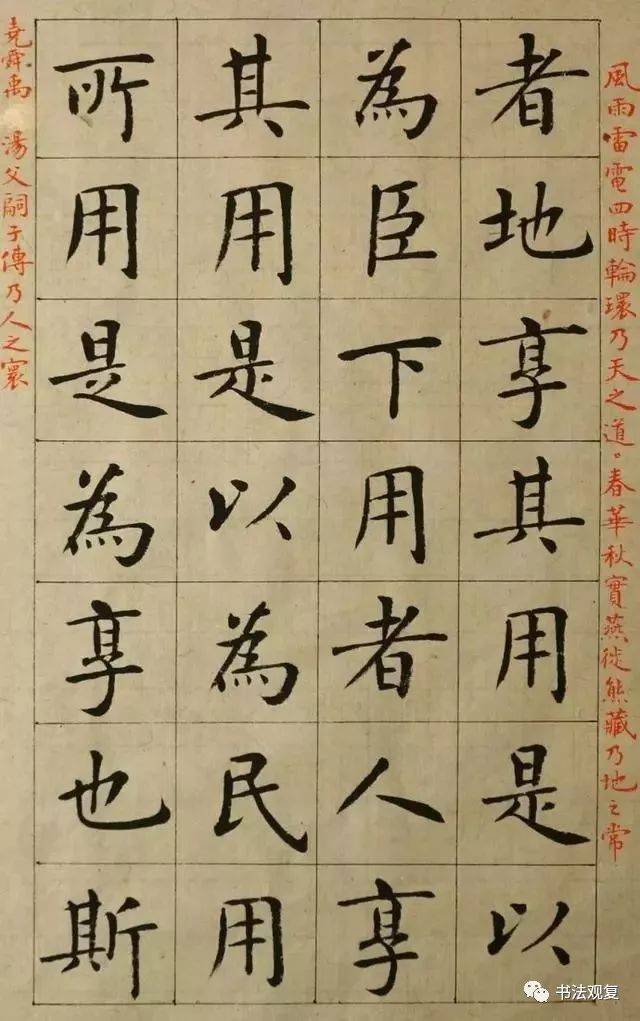 風雨雷電四時輪環乃天之道。春華秋實燕徙熊藏乃地之常
者地享其用是以
為臣下用者人享
其用是以為民用
所用是為享也斯
堯舜禹湯父嗣子傳乃人之寰
书法观复